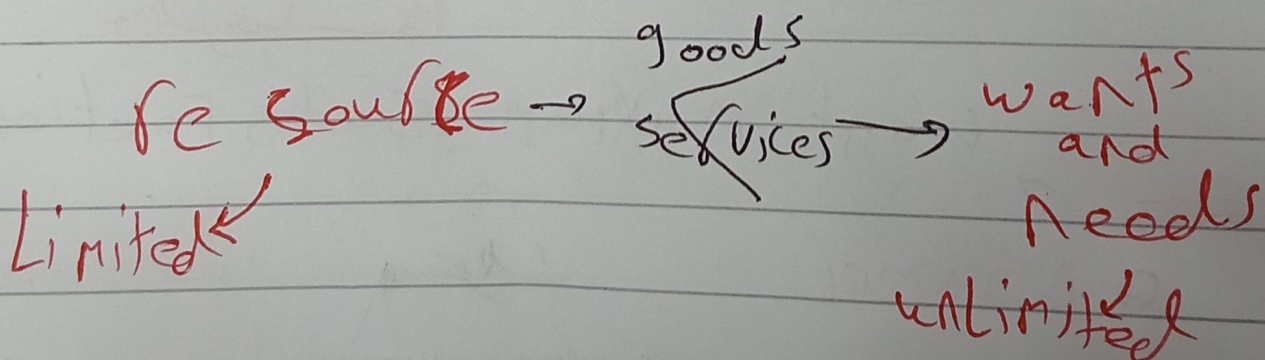 goods
resource → services → wants
and
needs
Limited
unlimited